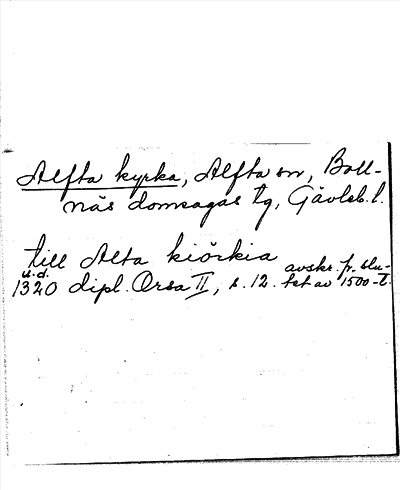 Alfta kyrka, Alfta sn, Boll-
näs domsagas tg, Gävleb. l.
till Alta kiörkia
u.d.
1320 dipl. Orsa II, s. 12. avskr. fr. slu-
tet av 1500-t.